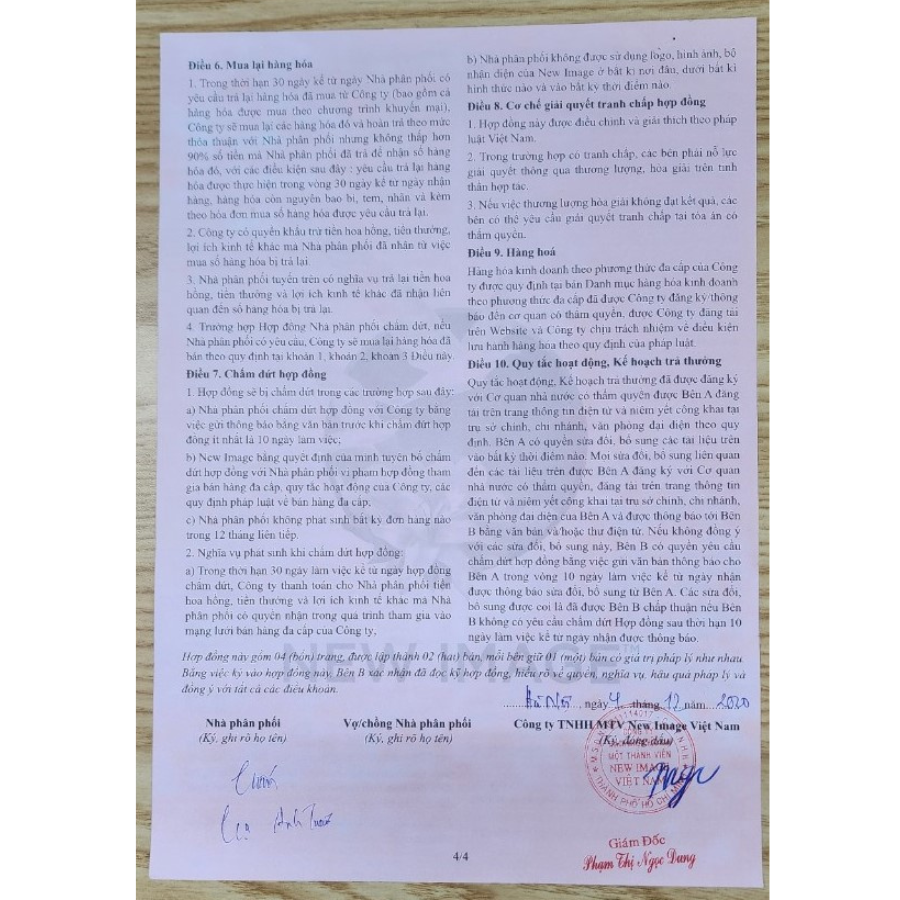 Điều 6. Mua lại hàng hóa
1. Trong thời hạn 30 ngày kể từ ngày Nhà phân phối có
yêu cầu trả lại hàng hóa đã mua từ Công ty (bao gồm cả
hàng hóa được mua theo chương trình khuyến mại),
Công ty sẽ mua lại các hàng hóa đó và hoàn trả theo mức
thỏa thuận với Nhà phân phối nhưng không thấp hơn
90% số tiền mà Nhà phân phối đã trả để nhận số hàng
hóa đó, với các điều kiện sau đây : yêu cầu trả lại hàng
hóa được thực hiện trong vòng 30 ngày kể từ ngày nhận
hàng, hàng hóa còn nguyên bao bì, tem, nhãn và kèm
theo hóa đơn mua số hàng hóa được yêu cầu trả lại.
2. Công ty có quyền khấu trừ tiền hoa hồng, tiền thưởng,
lợi ích kinh tế khác mà Nhà phân phối đã nhận từ việc
mua số hàng hóa bị trả lại
3. Nhà phân phối tuyến trên có nghĩa vụ trả lại tiền hoa
hồng, tiền thưởng và lợi ích kinh tế khác đã nhận liên
quan đến số hàng hóa bị trả lại.
4. Trường hợp Hợp đồng Nhà phân phối chấm dứt, nếu
Nhà phân phối có yêu cầu, Công ty sẽ mua lại hàng hóa đã
bán theo quy định tại khoản 1, khoản 2, khoản 3 Điều này.
Điều 7. Chấm dứt hợp đồng
1. Hợp đồng sẽ bị chấm dứt trong các trường hợp sau đây:
a) Nhà phân phối chấm dứt hợp đồng với Công ty bằng
việc gửi thông báo bằng văn bản trước khi chấm dứt hợp
đồng ít nhất là 10 ngày làm việc;
b) New Image bằng quyết định của mình tuyên bố chấm
dứt hợp đồng với Nhà phân phối vi phạm hợp đồng tham
gia bán hàng đa cấp, quy tắc hoạt động của Công ty, các
quy định pháp luật về bán hàng đa cấp;
c) Nhà phân phối không phát sinh bất kỳ đơn hàng nào
trong 12 tháng liên tiếp.
2. Nghĩa vụ phát sinh khi chấm dứt hợp đồng:
a) Trong thời hạn 30 ngày làm việc kể từ ngày hợp đồng
chấm dứt, Công ty thanh toán cho Nhà phân phối tiền
hoa hồng, tiền thưởng và lợi ích kinh tế khác mà Nhà
phân phối có quyền nhận trong quá trình tham gia vào
mạng lưới bán hàng đa cấp của Công ty,
b) Nhà phân phối không được sử dụng logo, hình ảnh, bộ
nhận diện của New Image ở bất kì nơi đâu, dưới bất kì
hình thức nào và vào bất kỳ thời điểm nào
Điều 8. Cơ chế giải quyết tranh chấp hợp đồng
1. Hợp đồng này được điều chỉnh và giải thích theo pháp
luật Việt Nam.
2. Trong trường hợp có tranh chấp, các bên phải nỗ lực
giải quyết thông qua thương lượng, hòa giải trên tinh
thần hợp tác.
3. Nếu việc thương lượng hòa giải không đạt kết quả, các
bên có thể yêu cầu giải quyết tranh chấp tại tòa án có
thẩm quyền.
Điều 9. Hàng hoá
Hàng hóa kinh doanh theo phương thức đa cấp của Công
ty được quy định tại bản Danh mục hàng hóa kinh doanh
theo phương thức đa cấp đã được Công ty đăng ký/thông
báo đến cơ quan có thẩm quyền, được Công ty đăng tải
trên Website và Công ty chịu trách nhiệm về điều kiện
lưu hành hàng hóa theo quy định của pháp luật.
Điều 10. Quy tắc hoạt động, Kế hoạch trả thưởng
Quy tắc hoạt động, Kế hoạch trả thưởng đã được đăng ký
với Cơ quan nhà nước có thẩm quyền được Bên A đăng
tải trên trang thông tin điện tử và niêm yết công khai tại
trụ sở chính, chi nhánh, văn phòng đại diện theo quy
định. Bên A có quyền sửa đổi, bổ sung các tài liệu trên
vào bất kỳ thời điểm nào. Mọi sửa đổi, bổ sung liên quan
đến các tài liệu trên được Bên A đăng ký với Cơ quan
nhà nước có thẩm quyền, đăng tải trên trang thông tin
điện tử và niêm yết công khai tại trụ sở chính, chi nhánh,
văn phòng đại diện của Bên A và được thông báo tới Bên
B bằng văn bản và/hoặc thư điện tử. Nếu không đồng ý
với các sửa đổi, bổ sung này, Bên B có quyền yêu cầu
chấm dứt hợp đồng bằng việc gửi văn bản thông báo cho
Bên A trong vòng 10 ngày làm việc kể từ ngày nhận
được thông báo sửa đổi, bổ sung từ Bên A. Các sửa đổi,
bổ sung được coi là đã được Bên B chấp thuận nếu Bên
B không có yêu cầu chấm dứt Hợp đồng sau thời hạn 10
ngày làm việc kể từ ngày nhận được thông báo.
NEW IMAGE™
Hợp đồng này gồm 04 (bốn) trang, được lập thành 02 (hai) bản, mỗi bên giữ 01 (một) bản có giá trị pháp lý như nhau.
Bằng việc ký vào hợp đồng này, Bên B xác nhận đã đọc kỹ hợp đồng, hiểu rõ về quyền, nghĩa vụ, hậu quả pháp lý và
đồng ý với tất cả các điều khoản.
Hà Nội, ngày 4 tháng 12 năm 2020
Nhà phân phối
(Ký, ghi rõ họ tên)
Vợ/chồng Nhà phân phối
(Ký, ghi rõ họ tên)
Công ty TNHH MTV New Image Việt Nam
(Ký, đóng dấu)
MỘT THÀNH VIÊN
NEW IMAGE
VIỆT NAM
THÀNH PHỐ HỒ CHÍ MINH
Giám Đốc
Phạm Thị Ngọc Dung
4/4